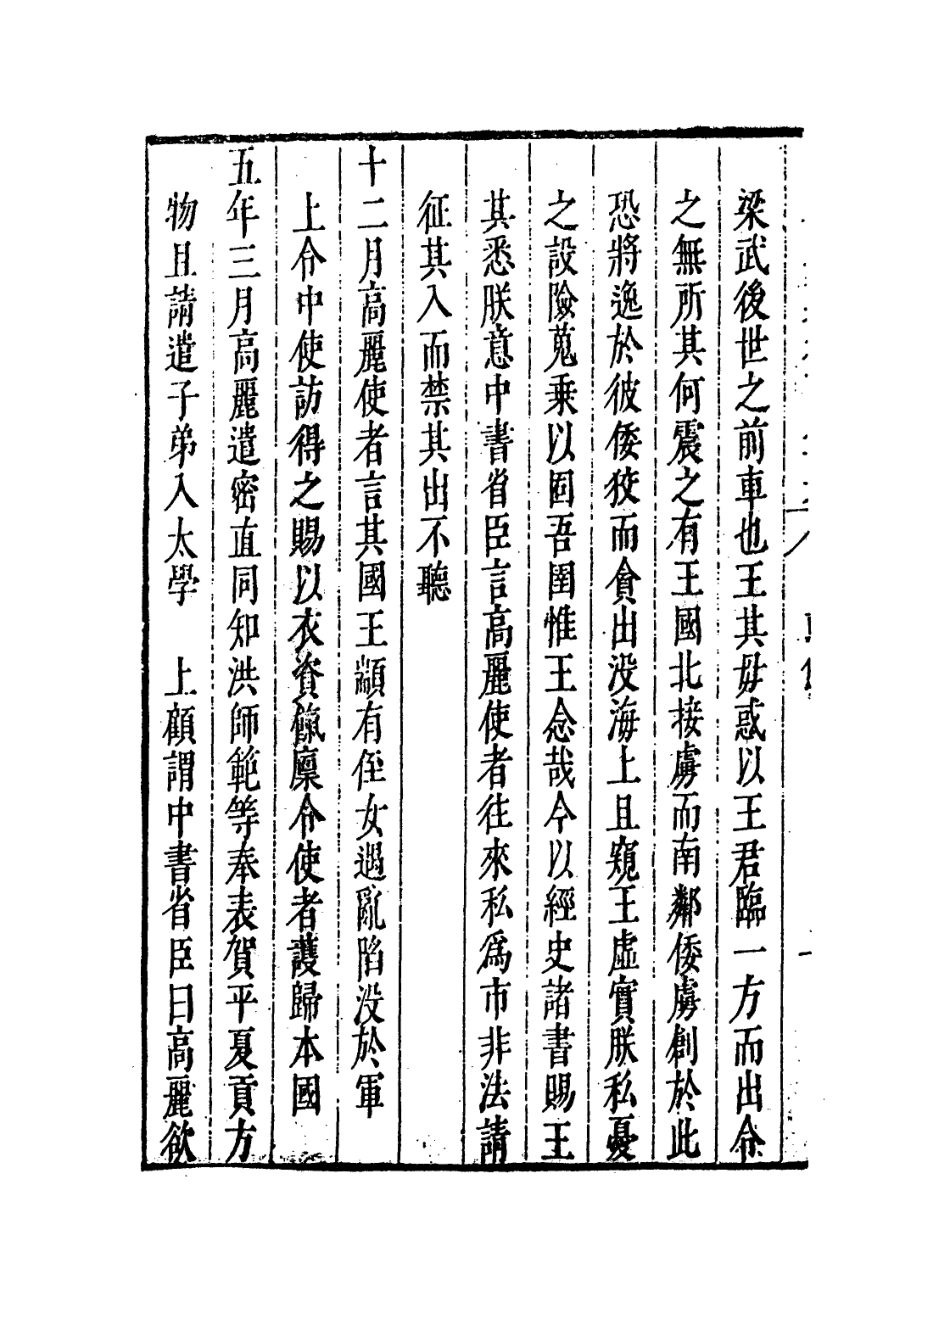 梁武後世之前車也王其毋惑以王君臨一方而出令
之無所其何震之有王國北接虜而南鄰倭虜創於此
恐將逸於彼倭狡而貪出没海上且窺王虛實朕私憂
之設險蒐乘以固吾圉惟王念哉今以經史諸書賜王
其悉朕意中書省臣言高麗使者往來私爲市非法請
征其入而禁其出不聽
十二月高麗使者言其國王顓有侄女遇亂陷没於軍
上令中使訪得之賜以衣資餼廩令使者護歸本國
五年三月高麗遣密直同知洪師範等奉表賀平夏貢方
物且請遣子弟入太學　上顧謂中書省臣曰高麗欲